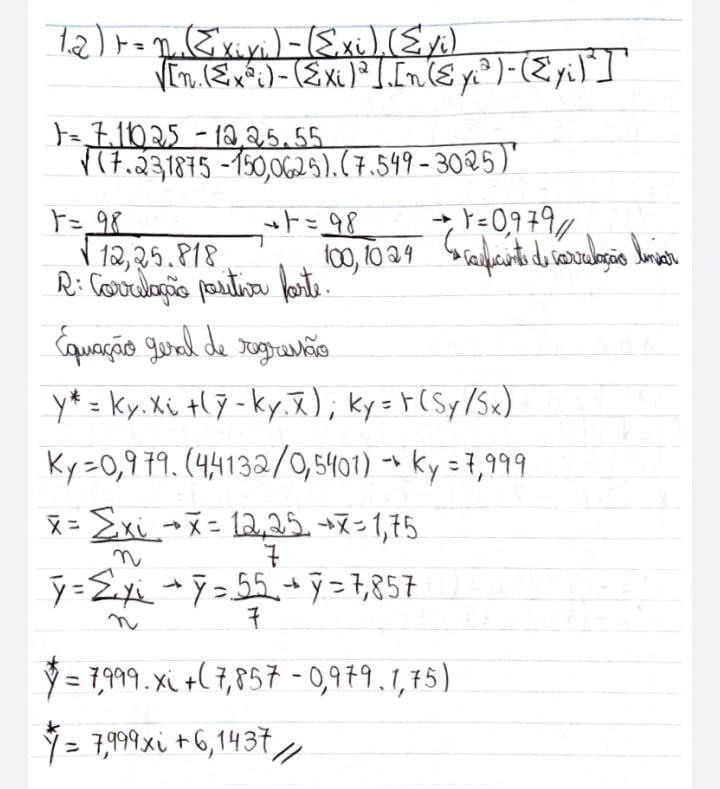 1.2) r = n.(Σxiyi) - (Σxi).(Σyi)
√[n.(Σx²i) - (Σxi)²].[n(Σyi²) - (Σyi)²]
r = 7.110,25 - 12,25.55
√(7.23,1875 - 150,0625).(7.549 - 3025)
r = 98 → r = 98 → r = 0,979 //
√12,25.818 100,1024 ↳ coeficiente de correlação linear
R: Correlação positiva forte.
Equação geral de regressão
y* = ky.xi + (ȳ - ky.x̄) ; ky = r(Sy/Sx)
ky = 0,979.(4,4132/0,5401) → ky = 7,999
x̄ = Σxi → x̄ = 12,25 → x̄ = 1,75
n 7
ȳ = Σyi → ȳ = 55 → ȳ = 7,857
n 7
y* = 7,999.xi + (7,857 - 0,979.1,75)
y* = 7,999xi + 6,1437 //